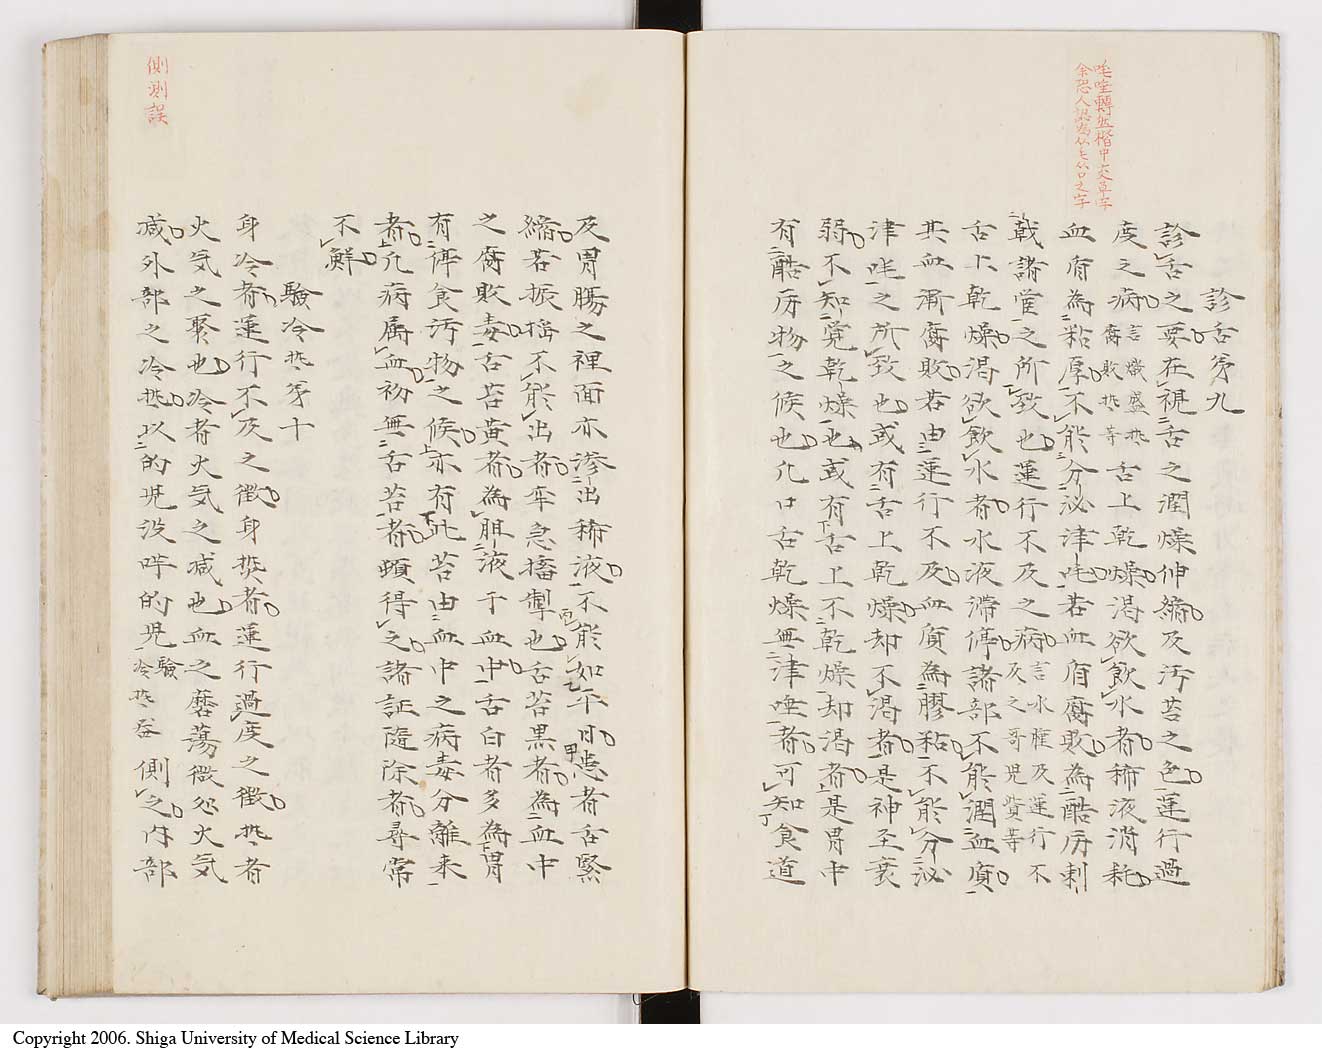 診舌第九
診舌之要在視舌之潤燥伸縮及汚苔之色運行過
度之病言熾盛热腐敗热等舌上乾燥渇欲飲水者稀液消耗
血質為粘厚不能分泌津唾若血質腐敗為酷厉刺
戟諸管之所致也運行不及之病言水腫及運行不及之哥児資等
舌上乾燥渇欲飲水者水液滞停諸部不能潤血質
其血漸腐敗若由運行不及血質為膠粘不能分泌
津唾之所致也或有舌上乾燥却不渇者是神圣衰
弱不知覚乾燥也或有舌上不乾燥却渇者是胃中
有酷厉物之候也凡口舌乾燥無津唾者可知食道
及胃腸之裡面亦滲出稀液不能如平日患者舌緊
縮若振揺不能出者牽急搐掣也舌苔黒者為血中
之腐敗毒舌苔黄者為胆液于血中舌白者多為胃
有停食汚物之候亦有此苔由血中之病毒分離来
者凡病属血初無舌苔者頓得之諸証随除者尋常
不鮮
験冷热第十
身冷者運行不及之徴身热者運行過度之徴热者
火気之聚也冷者火気之减也血之磨蕩微忽火気
减外部之冷热以的児没哶的児験冷热器側之内部
側測誤